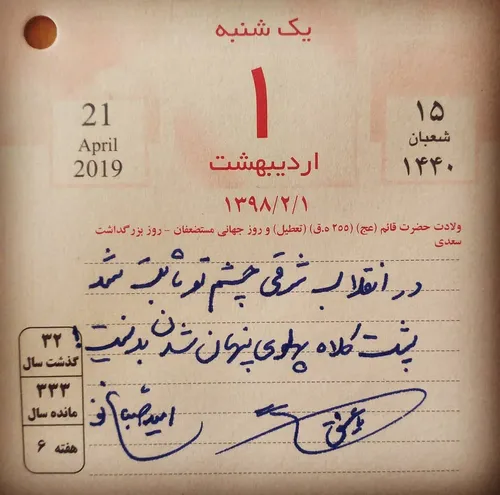 یک شنبه
۱
اردیبهشت
21
April
2019
۱۵
شعبان
۱۴۴۰
۱۳۹۸/۲/۱
ولادت حضرت قائم (عج) (۲۵۵ ه.ق) (تعطیل) و روز جهانی مستضعفان - روز بزرگداشت
سعدی
در انقلاب شرقی چشم تو ثابت شد
پشت کلاه پهلوی پنهان شدن بد نیست!
۳۲
گذشت سال
۳۳۳
مانده سال
هفته ۶
امید صباغ نو